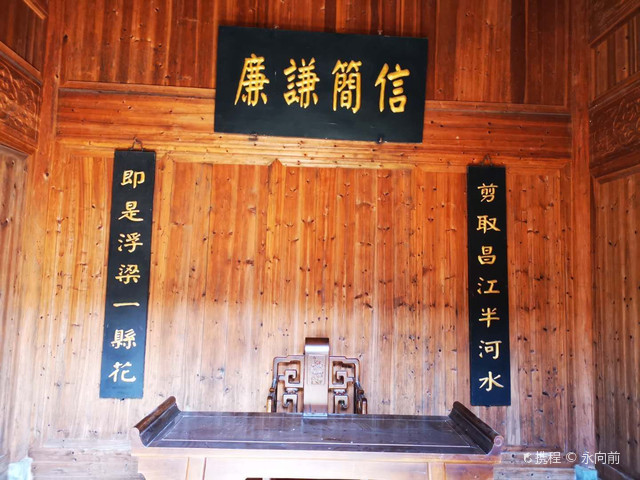 廉謙簡信
剪取昌江半河水
即是浮梁一縣花
携程 © 永向前